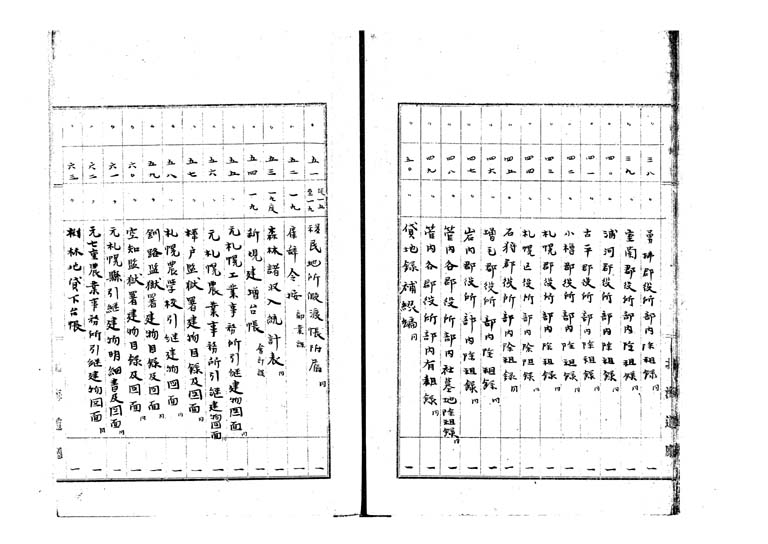 〃 三八 勇拂郡役所部内除租録 同 一
〃 三九 室蘭郡役所部内除租録 同 一
〃 四〇 浦河郡役所部内除租録 同 一
〃 四一 古平郡役所部内除租録 同 一
〃 四二 小樽郡役所部内除租録 同 一
〃 四三 札幌郡役所部内除租録 同 一
〃 四四 札幌区役所部内除租録 同 一
〃 四五 石狩郡役所部内除租録 同 一
〃 四六 増毛郡役所部内除租録 同 一
〃 四七 岩内郡役所部内除租録 同 一
〃 四八 管内各郡役所部内社墓地除租録 同 一
〃 四九 管内各郡役所部内有租録 同 一
〃 五〇 貸地録補綴編 同 一
北海道廳
〃 五一 至一九 移民地所 同 一
〃 五二 一九 雇辞令扣 一
〃 五三 一九度 森林諸収入統計表 同 一
〃 五四 一九 新規建増台帳 会計課 一
〃 五五 元札幌工業事務所引継建物図面 同 一
〃 五六 元札幌農業事務所引継建物図面 同 一
〃 五七 樺戸監獄署建物目録及図面 同 一
〃 五八 札幌農学校引継建物図面 同 一
〃 五九 釧路監獄署建物目録及図面 同 一
〃 六〇 空知監獄署建物目録及図面 同 一
〃 六一 元札幌縣引継建物明細書及図面 同 一
〃 六二 元七重農業事務所引継建物図面 同 一
〃 六三 樹林地貸下台帳 一
北海道廳